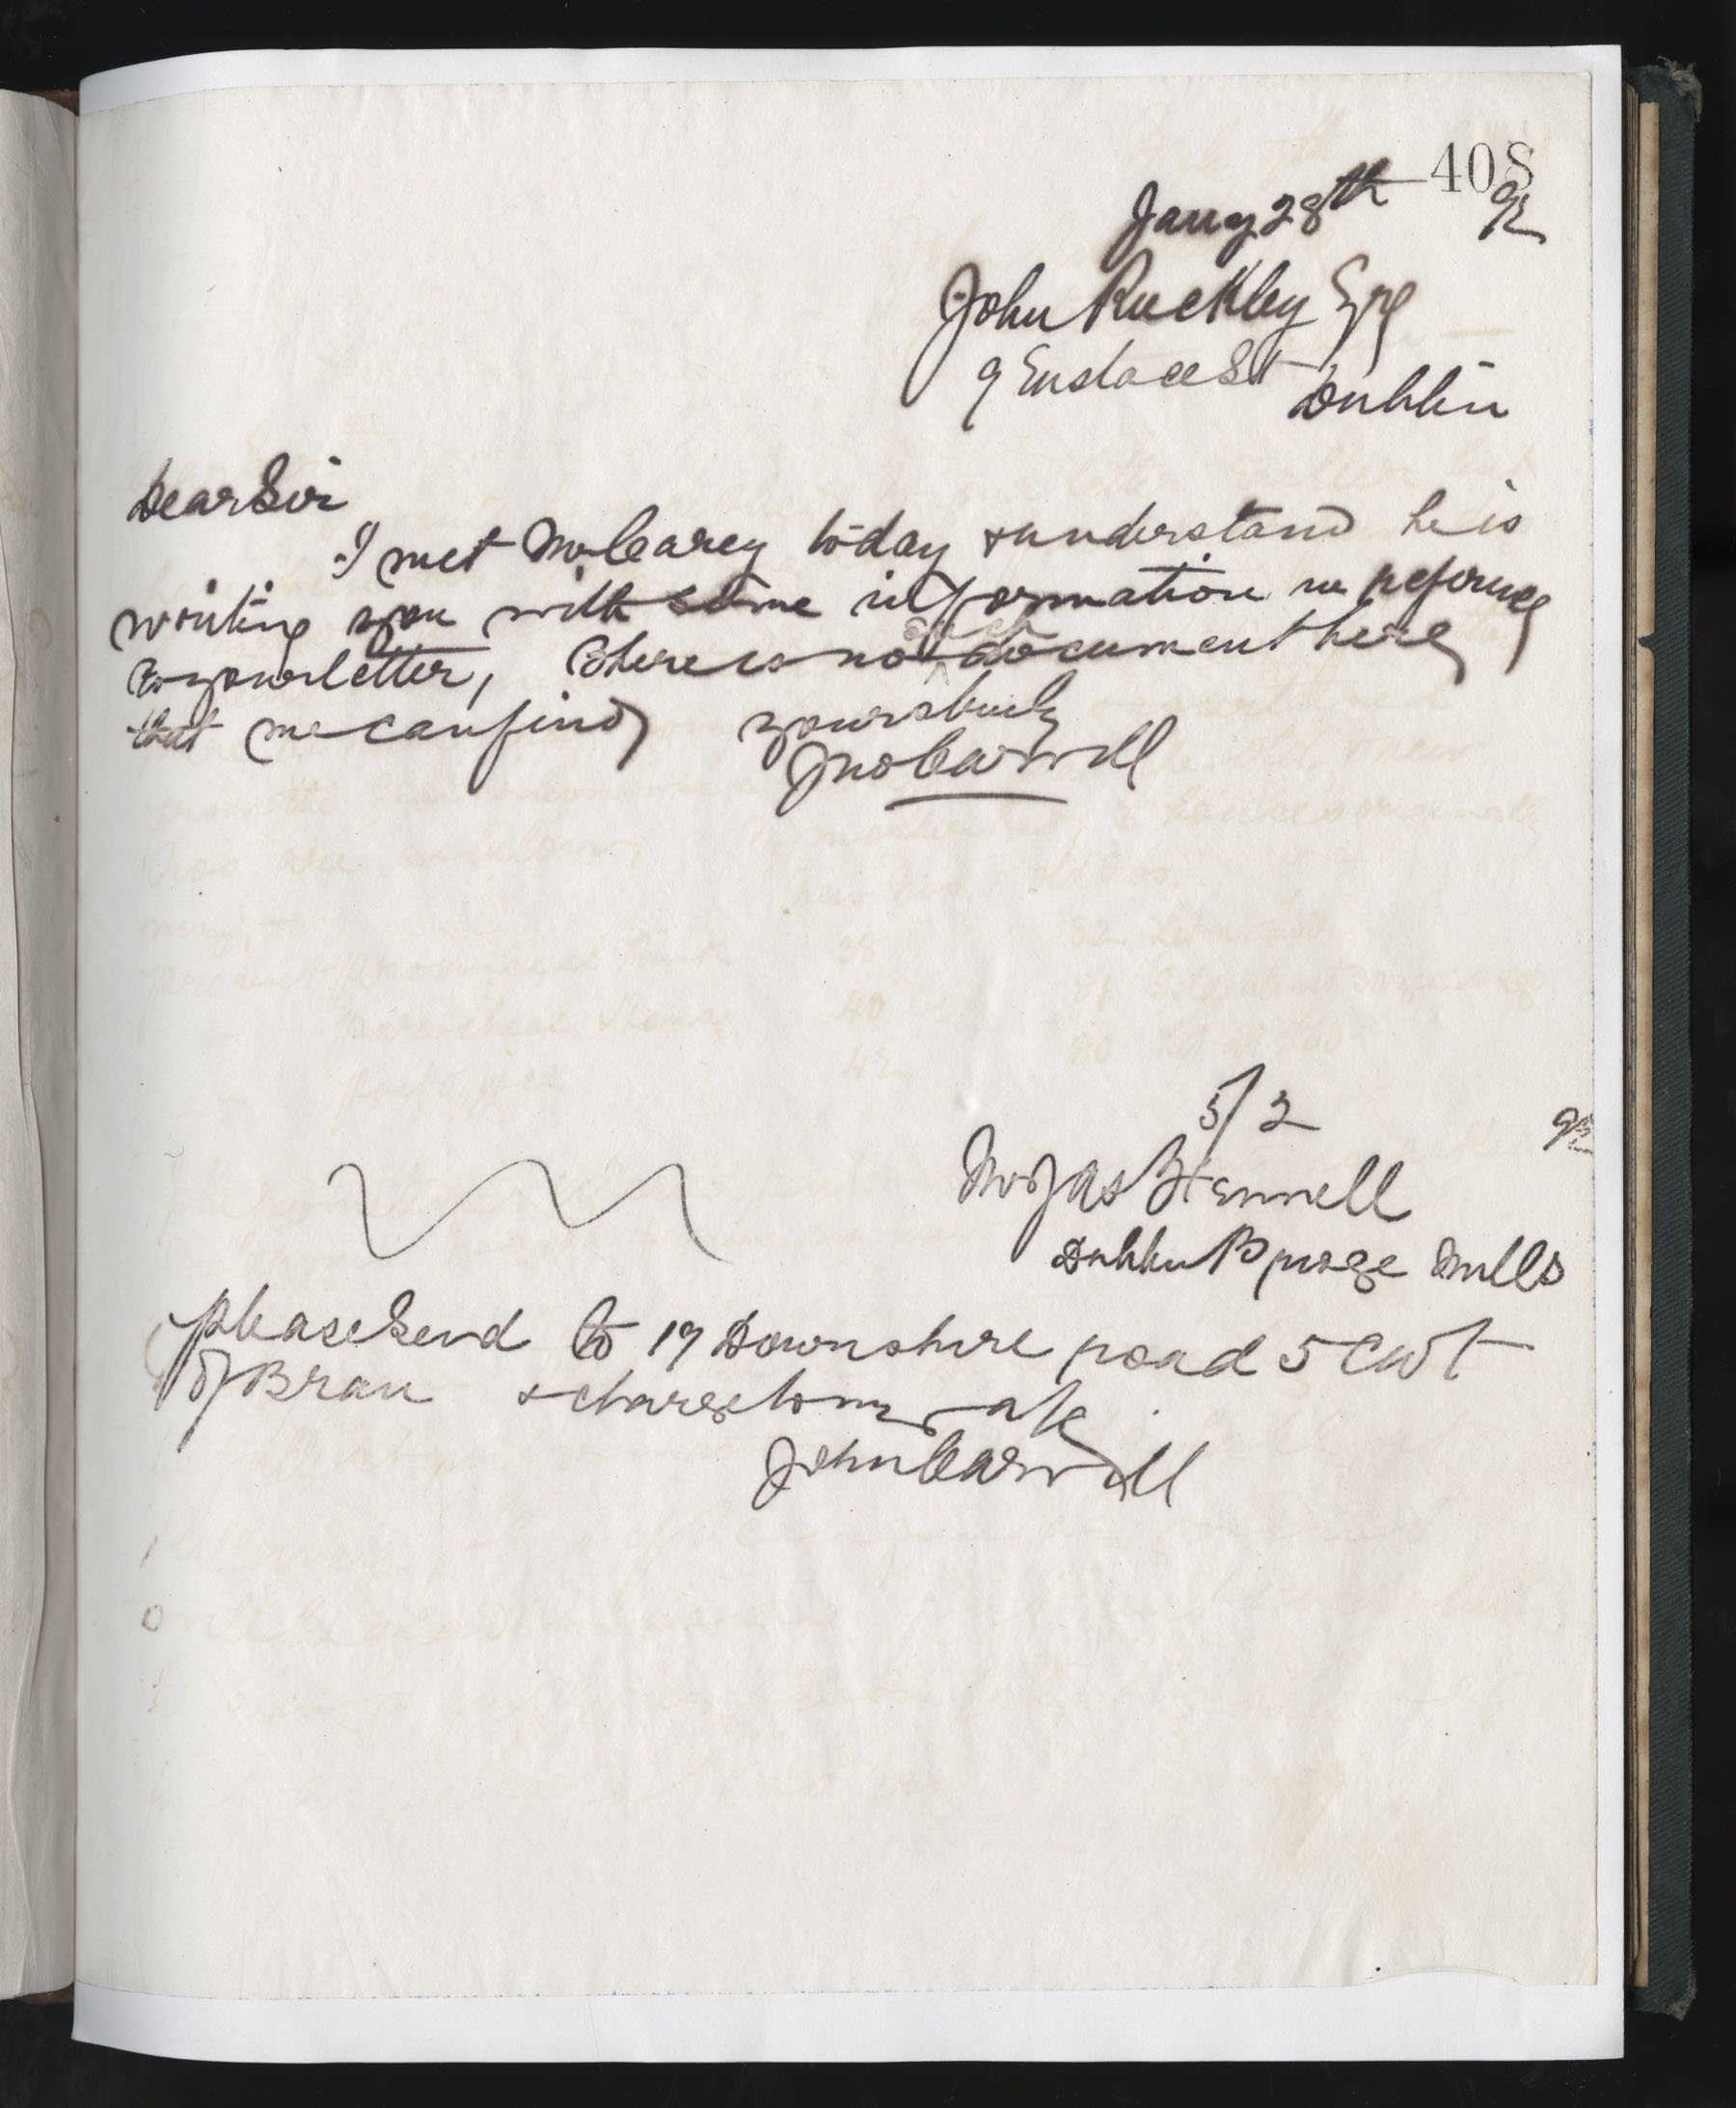 408
Jany 28th 92
John Ruckley Esq
9 Eustace St Dublin
Dear Sir
I met Mr Carey today & understand he is
writing you with some information in reference
to your letter, There is no such document here
that we can find yours truly
Jno Carvill
5/2 92
Mr Jas H Fennell
Dublin Bridge Mills
Please Send to 19 Downshire road 5 Cwt
of Bran & charge to my a/c
John Carvill